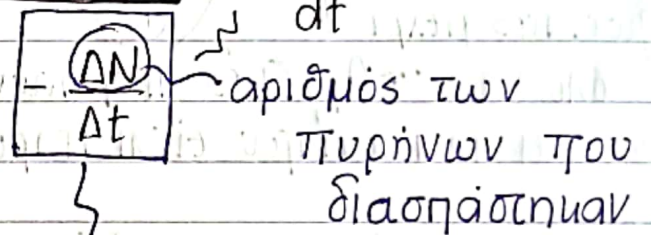 dt
- ΔN αριθμός των
Δt πυρήνων που
διασπάστηκαν